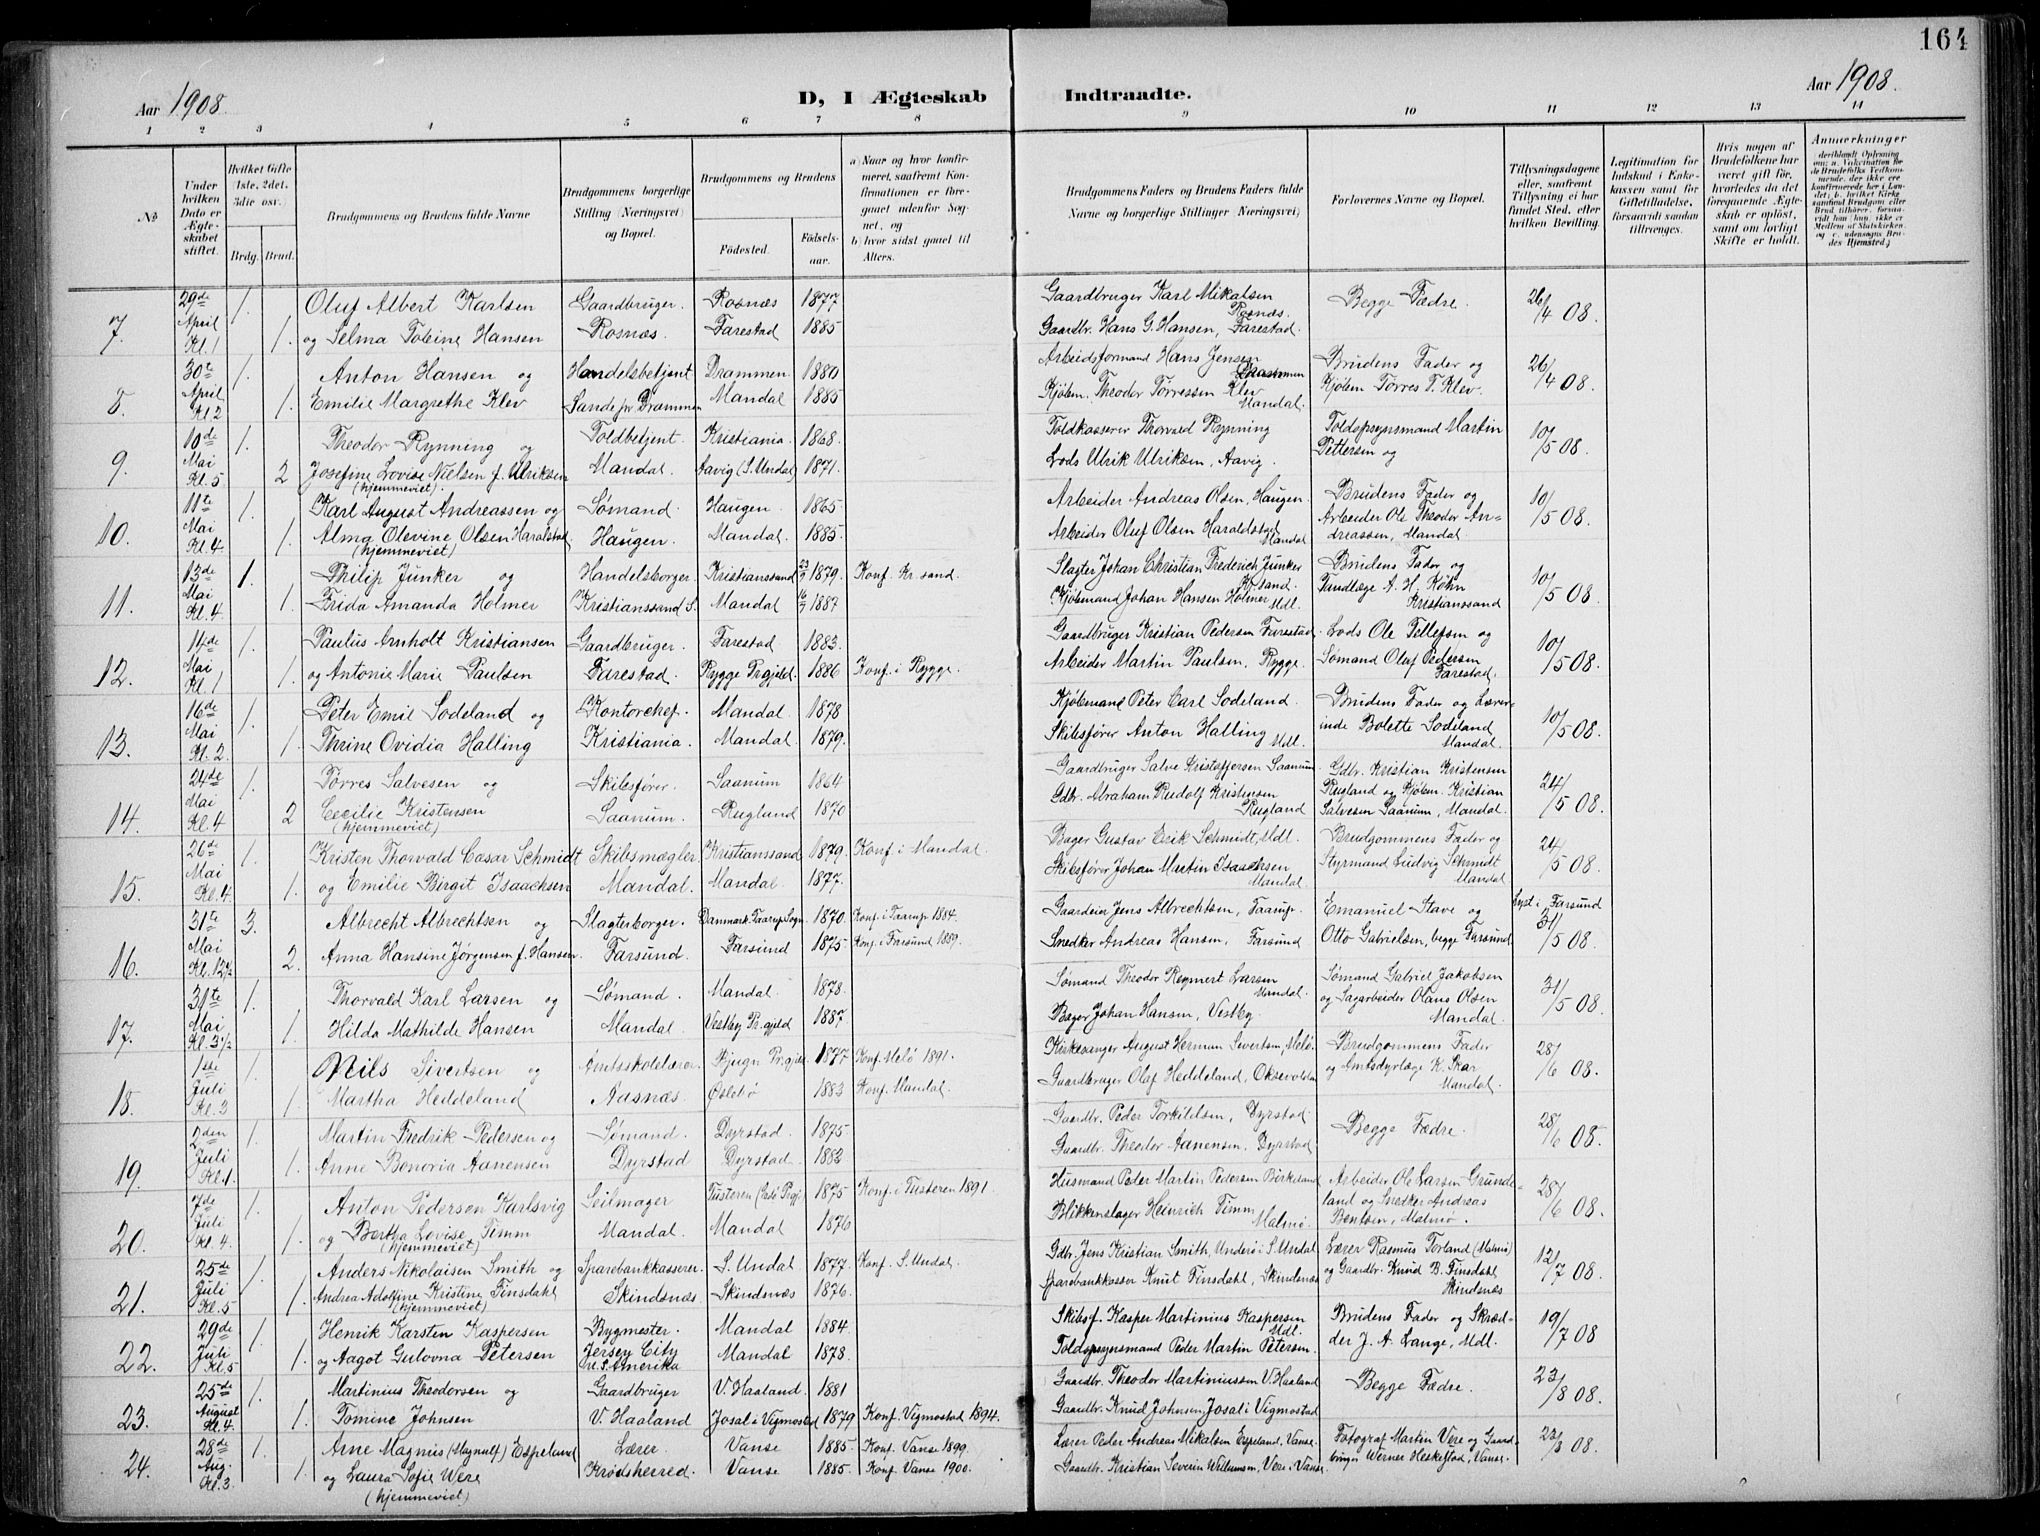 164
Aar 1908.
D, I Ægteskab Indtraadte.
Aar 1908.
1 2 3 4 5 6 7 8 9 10 11 12 13 14
No
Under hvilken Dato er Ægteskabet stiftet.
Hvilket Gifte (1ste, 2det, 3die osv.)
Brdg. Brud.
Brudgommens og Brudens fulde Navne
Brudgommens borgerlige Stilling (Næringsvei) og Bopæl.
Brudgommens og Brudens
Fødested. Fødselsaar.
a) Naar og hvor konfirmeret, saafremt Konfirmationen er foregaaet udenfor Sognet, og
b) hvor sidst gaaet til Alters.
Brudgommens Faders og Brudens Faders fulde Navne og borgerlige Stillinger (Næringsvei)
Forlovernes Navne og Bopæl.
Tillysningsdagene eller, saafremt Tillysning ei har fundet Sted, efter hvilken Bevilling.
Legitimation for Indskud i Enkekassen samt for Giftetilladelse, forsaavidt saadan tiltrænges.
Hvis nogen af Brudefolkene har været gift før, hvorledes da det foregaaende Ægteskab er opløst, samt om lovligt Skifte er holdt.
Anmærkninger
7. 29de April Kl. 1 1. Oluf Albert Karlsen Gaardbruger. Rosnæs 1877 Gaardbruger Karl Mikalsen Rosnæs. Begge Fædre. 26/4 08.
1. og Selma Tobine Hansen Rosnæs. Farestad 1885 Gaardbr. Hans G. Hansen, Farestad.
8. 30te April Kl 2 1. Anton Hansen og Handelsbetjent Drammen. 1880 Arbeidsformand Hans Jensen Drammen Brudens Fader og 26/4 08.
1. Emilie Margrethe Klev Sande pr Drammen Mandal 1885 Kjøbm. Theodor Tørressen Klev Mandal. Kjøbm Tørres T. Klev.
9. 10de Mai Kl. 5 1. Theodor Rynning og Toldbetjent. Kristiania. 1868. Toldkasserer Thorvald Rynning Toldopsynsmand Martin 10/5 08.
2 Josefine Lovise Nielsen f. Ulriksen Mandal. Aavig (S. Undal) 1871. Lods Ulrik Ulriksen, Aavig. Pettersen og
(hjemmeviet).
10. 11te Mai Kl. 4 1. Karl August Andreassen og Sømand. Haugen. 1865 Arbeider Andreas Olsen, Haugen. Brudens Fader og 10/5 08.
1. Alma Olevine Olsen Haralstad Haugen. Mandal. 1885. Arbeider Oluf Olsen Haraldstad Mandal Arbeider Ole Theodor Andreassen, Mandal
(hjemmeviet)
11. 13de Mai Kl. 4 1. Philip Junker og Handelsborger. Kristianssand 1879. Konf. Kr.sand. Slagter Johan Christian Frederich Junker Kr.sand. Brudens Fader og 10/5 08.
1. Frida Amanda Holmer Kristianssand S. Mandal 1887 Kjøbmand Johan Hansen Holmer Mdl. Tandlæge A. H. Køhn Kristianssand
12. 14de Mai Kl. 1 1. Paulus Arnholt Kristiansen Gaardbruger. Farestad 1883. Gaardbruger Kristian Pedersen Farestad. Lods Ole Tellefsen og 10/5 08.
1. og Antonie Marie Paulsen Farestad. Rygge Prgjeld. 1886 Konf. i Rygge. Arbeider Martin Paulsen, Rygge. Sømand Oluf Pedersen Farestad.
13. 16de Mai Kl. 2. 1. Peter Emil Sodeland og Kontorchef. Mandal 1878 Kjøbmand Peter Carl Sodeland. Brudens Fader og Lærer- 10/5 08.
1. Thrine Ovidia Halling Kristiania. Mandal. 1879. Skibsfører Anton Halling Mdl. inde Bolette Sodeland Mandal.
14. 24de Mai Kl. 4 1. Tørres Salvesen og Skibsfører. Saanum 1864 Gaardbruger Salve Kristoffersen Saanum. Gdbr. Kristian Kristensen 24/5 08.
2 Cecilie Kristensen Saanum. Rugland 1870 Gdbr. Abraham Rudolf Kristensen Rugland Rugland og Kjøbm. Kristian Salvesen Saanum, Mandal.
(hjemmeviet)
15. 26de Mai Kl. 4. 1. Kristen Thorvald Cæsar Schmidt Skibsmægler. Kristianssand 1879. Konf. i Mandal. Bager Gustav Erik Schmidt, Mdl. Brudgommens Fader og 24/5 08.
1. og Emilie Birgit Isaachsen Mandal. Mandal. 1877. Skibsfører Johan Martin Isaachsen Mandal. Styrmand Ludvig Schmidt Mandal.
16. 31te Mai Kl. 12½ 3. Albrecht Albrechtsen og Slagterborger. Danmark. Taarup Sogn. 1870. Konf. i Taarup 1884. Gaardeier Jens Albrechtsen, Taarup. Emanuel Stave og Lyst i Farsund 31/5 08.
2. Anna Hansine Jørgensen f. Hansen. Farsund. Farsund 1875 Konf. i Farsund 1889. Snedker Andreas Hansen, Farsund Otto Gabrielsen, begge Farsund.
17. 31te Mai Kl. 3½ 1. Thorvald Karl Larsen og Sømand. Mandal 1878. Sømand Theodor Reymert Larsen Mandal. Sømand Gabriel Jakobsen 31/5 08.
1. Hilda Mathilde Hansen Mandal. Vestby Pr.gjeld 1887. Bager Johan Hansen, Vestby. og Sagarbeider Olaus Olsen Mandal.
18. 1ste Juli Kl. 3 1. Nils Sivertsen og Amtsskolelærer 1877 Konf. Melø 1891. Kirkesanger August Herman Severtsen, Melø. Brudgommens Fader 28/6 08.
1. Martha Heddeland Aasnæs. Øslebø 1883 Konf. Mandal. Gaardbruger Olaf Heddeland, og Amtsdyrlæge K. Skar Mandal.
19. 2den Juli Kl. 1. 1. Martin Fredrik Pedersen og Sømand. Dyrstad. 1875. Gaardbr. Peder Torkildsen, Dyrstad. Begge Fædre. 28/6 08.
1. Anne Bonoria Aanensen Dyrstad Dyrstad. 1882 Gaardbr. Theodor Aanensen, Dyrstad
20. 7de Juli Kl. 4. 1. Anton Pedersen Karlsvig Seilmager Tusteren 1875 Konf. i Tusteren 1891. Husmand Peder Martin Pedersen Birkeland Arbeider Ole Larsen Grunde- 28/6 08.
1. og Bertha Lovise Timm Mandal. Mandal 1876 Blikkenslager Heinrich Timm Malmø. land og Snedker Andreas Bentsen, Malmø.
(hjemmeviet)
21. 25de Juli Kl. 5 1. Anders Nikolaisen Smith og Sparebankkasserer. S. Undal 1877. Konf. S. Undal. Gdbr. Jens Kristian Smith, Underø i S. Undal Lærer Rasmus Torland (Malmø) 12/7 08.
1. Andrea Adolfine Kristine Finsdahl Skindsnæs. Skindsnæs 1876. Sparebankkasser Knut Finsdahl, Skindsnæs og Gaardbr. Knud B. Finsdahl, Skindsnæs
(hjemmeviet)
22. 29de Juli Kl. 5 1. Henrik Karsten Kaspersen Bygmester. Mandal 1884. Skibsf. Kasper Martinius Kaspersen Mdl. Brudens Fader og Skræd- 19/7 08
1. og Aagot Gulovna Petersen Jersey City N. Amerika Mandal 1878. Toldopsynsmand Peder Martin Petersen. der J. A. Lange, Mdl.
23. 25de August Kl. 4. 1. Martinius Theodorsen og Gaardbruger V. Haaland. 1881 Gaardbr. Theodor Martiniussen V. Haaland Begge Fædre. 23/8 08.
1. Tomine Johnsen V. Haaland Josal i Vigmostad 1879 Konf. Vigmostad 1894. Gaardbr. Knud Johnsen Josal i Vigmostad
24. 28de Aug. Kl. 3 1. Arne Magnus (Magnulf) Espeland Lærer. Vanse 1885. Konf. Vanse 1899. Lærer Peder Andreas Mikalsen Espeland, Vanse. Fotograf Martin Vere og Gaard- 23/8 08.
1. og Laura Sofie Were Krødsherred. Vanse 1885. Konf. Vanse 1900. Gaardbr. Kristian Severin Willumsen, Vere i Vanse. bruger Werner Heskestad, Vanse.
(hjemmeviet)